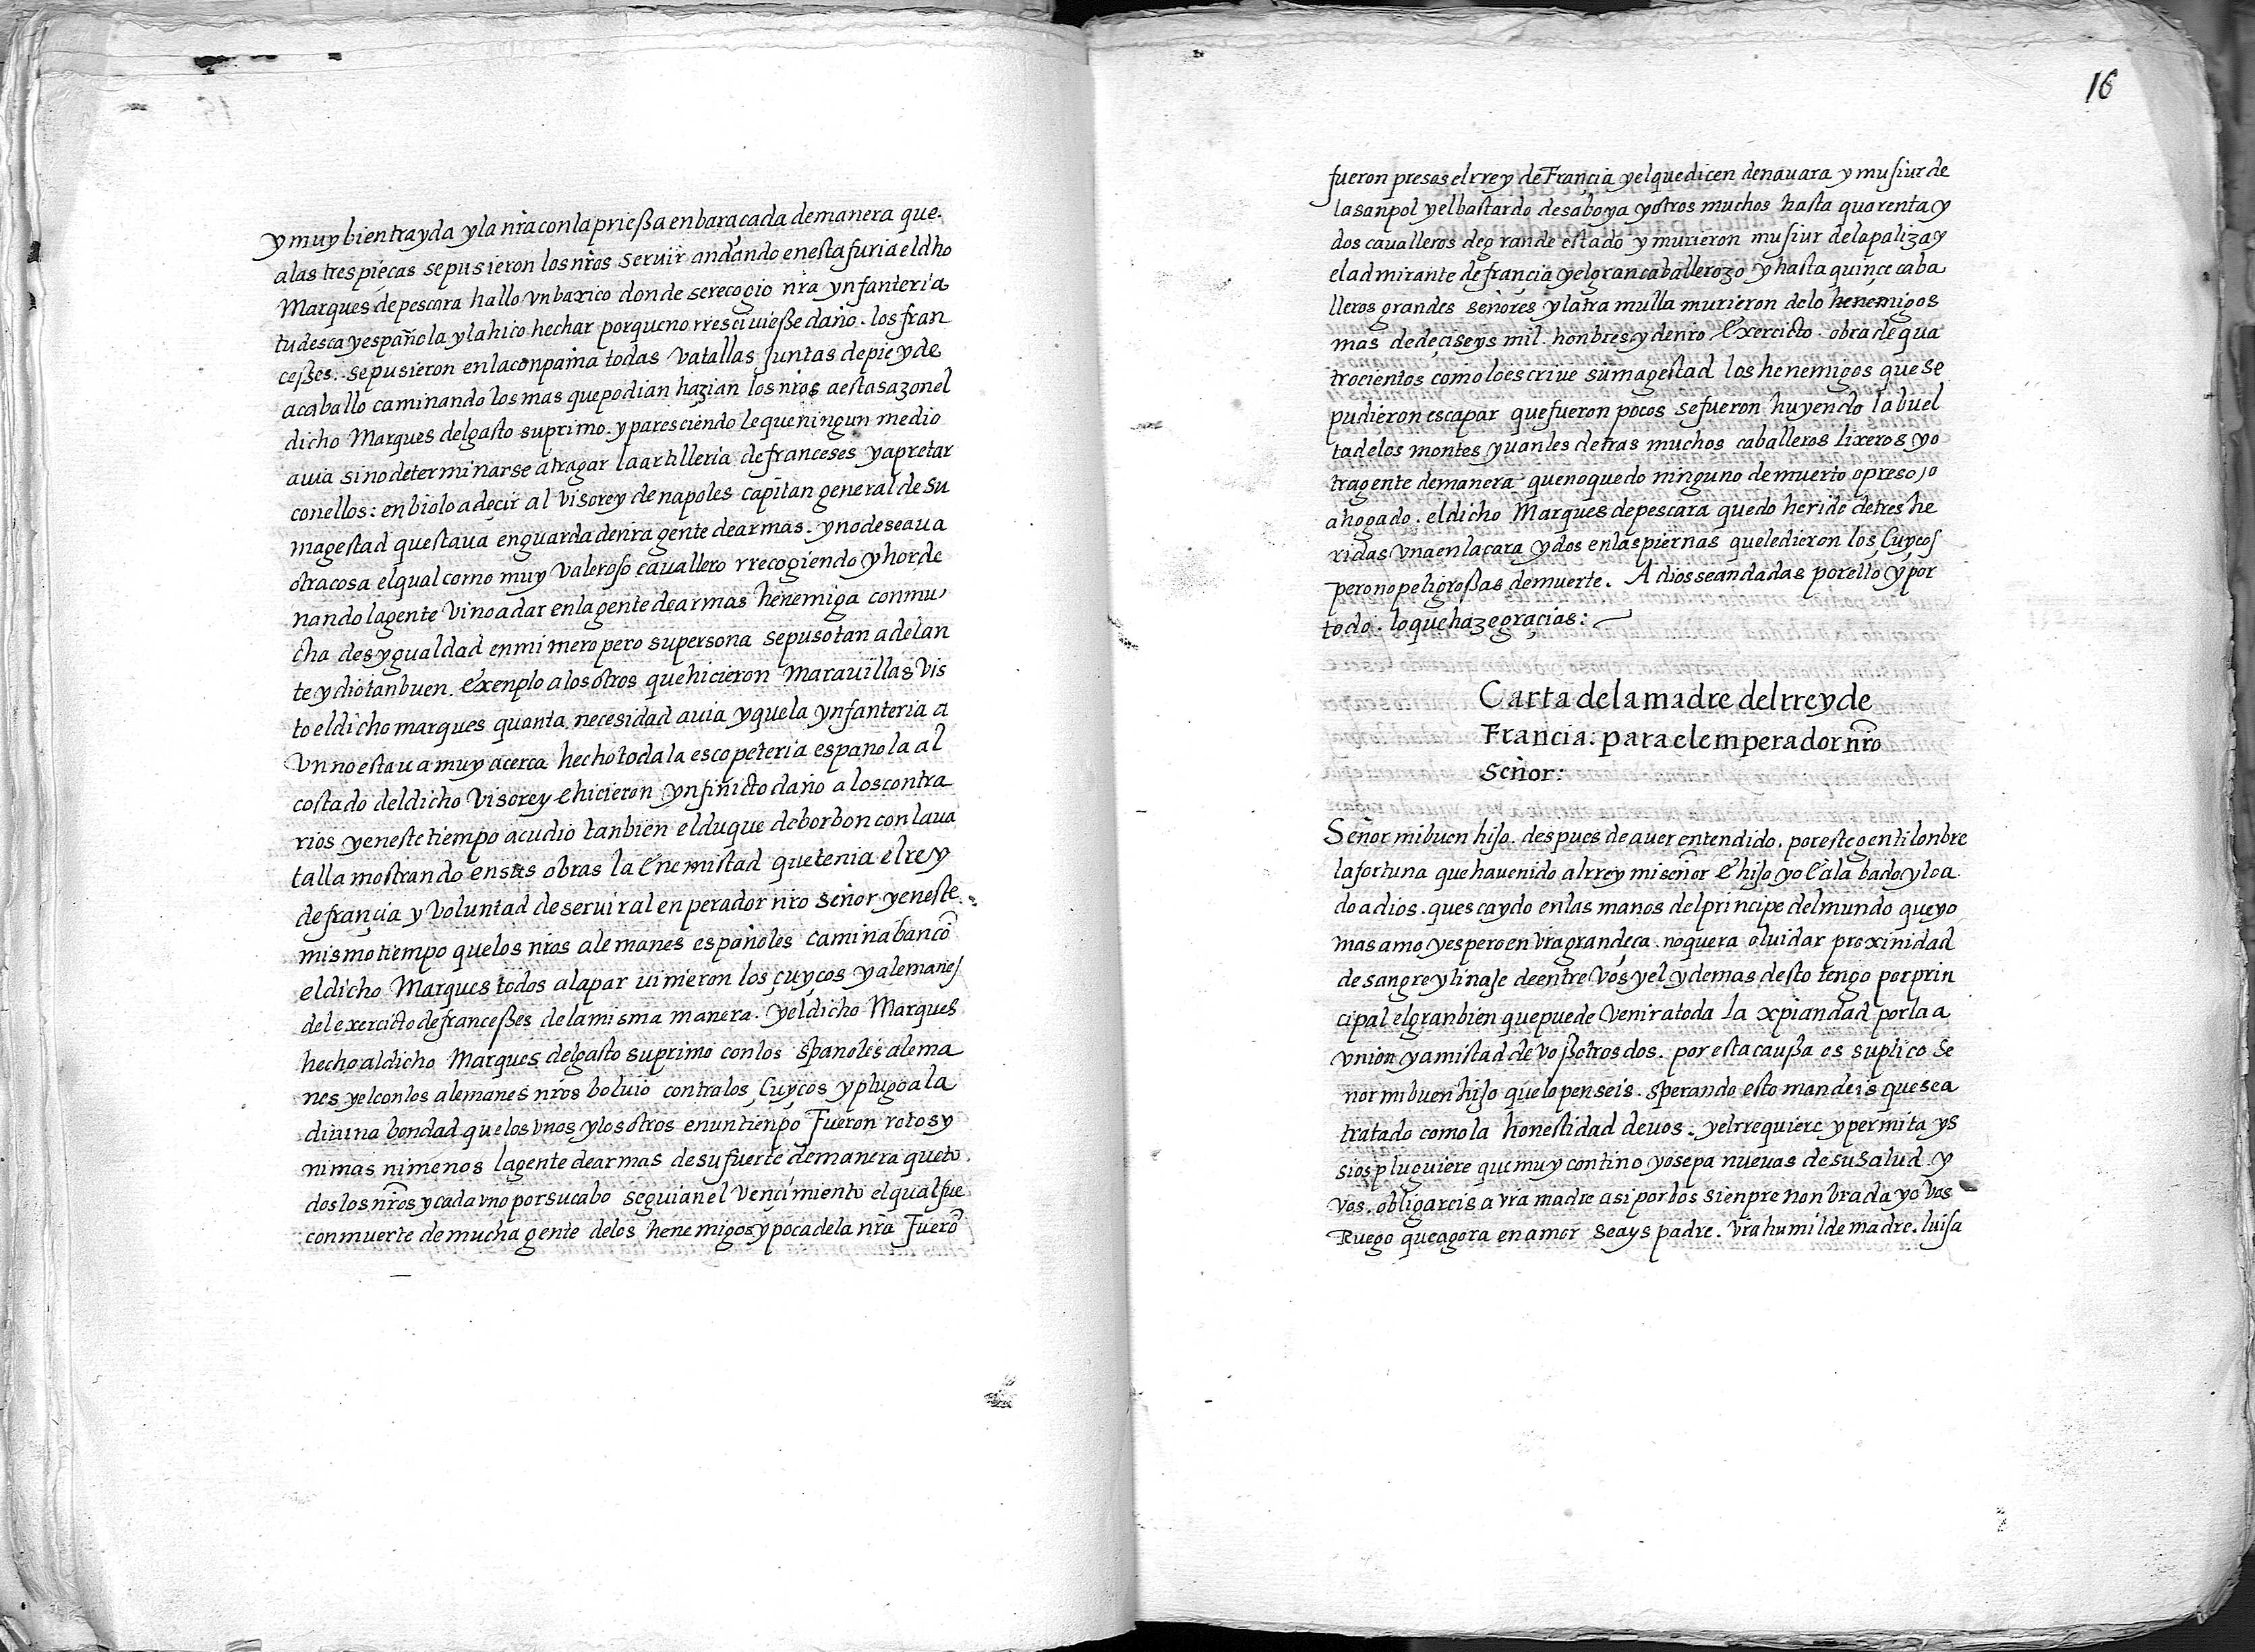 y muy bien trayda y la nr̃a con la prießa enbaraçada de manera que.
a las tres pieças se pusieron los nr̃os servir andando en esta furia el dho
Marques de pescara hallo vn baxico donde se recogio nr̃a ynfanteria
tudesca y española y la hico hechar porque no rresciuieße daño. los fran
ceßes. se pusieron en la conpaña todas vatallas juntas de pie y de
a caballo caminando los mas que podian hazian los nr̃os a esta sazon el
dicho Marques del gasto su primo. y paresciendo le que ningun medio
auia sino determinarse a tragar la artilleria de franceses y apretar
con ellos: enbiolo a deçir al visorey de napoles capitan general de su
magestad que staua en guarda de nr̃a gente de armas. y no deseaua
otra cosa el qual como muy valeroso cauallero rrecogiendo y horde
nando la gente vino a dar en la gente de armas henemiga con mu
cha desygualdad en mimero pero su persona se puso tan adelan
te y dio tan buen. exenplo a los otros que hicieron marauillas vis
to el dicho marques quanta necesidad auia y que la ynfanteria a
vn no estaua muy acerca hecho toda la escopeteria española al
costado del dicho visorey e hicieron ynfinicto daño a los contra
rios y en este tiempo acudio tanbien el duque de borbon con la ua
talla mostrando en sus obras la enemistad que tenia el rey
de françia y voluntad de seruir al enperador nr̃o señor y en este.
mismo tiempo que los nr̃os alemanes españoles caminaban cõ
el dicho Marques todos a la par uimieron los çuyços y alemanes
del exercicto de franceßes de la misma manera. y el dicho Marques
hecho al dicho Marques del gasto su primo con los spañoles alema
nes y el con los alemanes nr̃os boluio contra los çuyços y plugo a la
diuina bondad que los vnos y los otros en un tienpo Fueron rotos y
ni mas ni menos la gente de armas de su fuerte de manera que to
dos los nr̃os y cada vno por su cabo seguian el vençimiento el qual fue
con muerte de mucha gente de los henemigos y poca de la nr̃a Fuerõ
16
fueron presos el rrey de Françia y el que dicen de nauara y musiur de
la sanpol y el bastardo de saboya y otros muchos hasta quarenta y
dos caualleros de grande estado y murieron musiur de la paliza y
el admirante de françia y el gran caballerozo y hasta quinçe caba
lleros grandes señores y la tra mulla murieron de lo henemigos
mas de deçiseys mil. honbres y de nr̃o exercicto. obra de qua
trocientos como lo escriue su magestad los henemigos que se
pudieron escapar que fueron pocos se fueron huyendo la buel
ta de los montes y uan les detras muchos caballeros lixeros y o
tra gente de manera que no quedo ninguno de muerto o preso, o
ahogado. el dicho Marques de pescara quedo herido de tres he
ridas vna en la cara y dos en las piernas que le dieron los çuyços
pero no peligroßas de muerte. A dios sean dadas por ello y por
todo. lo que haze graçias:
Carta de la madre del rrey de
Francia: para el emperador nr̃o
señor:
Señor mi buen hijo. despues de auer entendido. por este gentilonbre
la fortuna que ha uenido al rrey mi señor e hijo yo e alabado y loa
do a dios. ques caydo en las manos del principe del mundo que yo
mas amo y espero en vr̃a grandeça. no quera oluidar proxinidad
de sangre y linaje de entre vos y el y demas desto tengo por prin
cipal el gran bien que puede venir a toda la xp̃iandad por la a
vnion y amistad de voßotros dos. por esta caußa es suplico se
nor mi buen hijo que lo penseis. sperando esto mandeis que sea
tratado como la honestidad de uos. y el rrequiere y permita y s
si os pluguiere que muy contino yo sepa nueuas de su salud. y
vos. obligareis a vr̃a madre asi por bos sienpre nonbrada yo bos
Ruego que agora en amor seays padre. vr̃a humilde madre. luisa